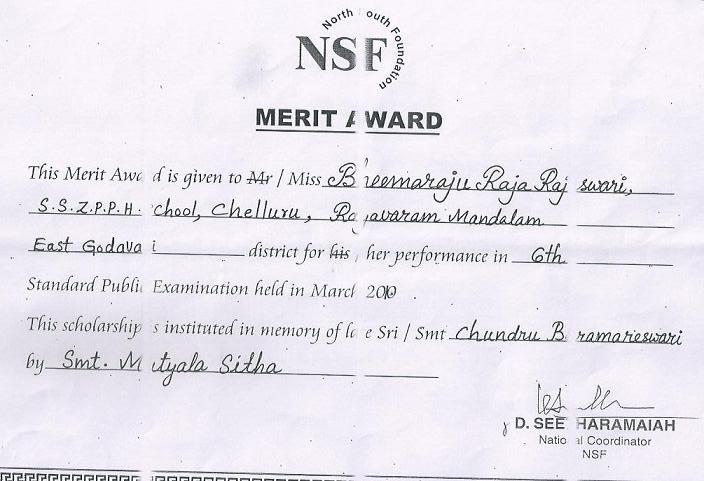 North South Foundation
NSF
MERIT AWARD
This Merit Award is given to Mr / Miss Bheemaraju Raja Raj swari,
S.S.Z.P.P.H. chool, Chelluru, Ra avaram Mandalam
East Godava i district for his / her performance in 6th
Standard Public Examination held in March 2010
This scholarship is instituted in memory of late Sri / Smt Chundru B ramareswari
by Smt. Mutyala Sitha
D. SEETHARAMAIAH
National Coordinator
NSF